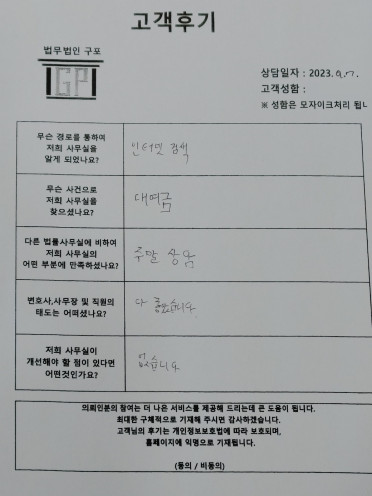 고객후기
법무법인 구포
GP
상담일자 : 2023.
고객성함 :
※ 성함은 모자이크처리 됩니
무슨 경로를 통하여
저희 사무실을
알게 되었나요?
인터넷 검색
무슨 사건으로
저희 사무실을
찾으셨나요?
대여금
다른 법률사무실에 비하여
저희 사무실의
어떤 부분에 만족하셨나요?
주말 상담
변호사,사무장 및 직원의
태도는 어떠셨나요?
다 좋았습니다
저희 사무실이
개선해야 할 점이 있다면
어떤것인가요?
없습니다
의뢰인분의 참여는 더 나은 서비스를 제공해 드리는데 큰 도움이 됩니다.
최대한 구체적으로 기재해 주시면 감사하겠습니다.
고객님의 후기는 개인정보보호법에 따라 보호되며,
홈페이지에 익명으로 기재됩니다.
(동의 / 비동의)